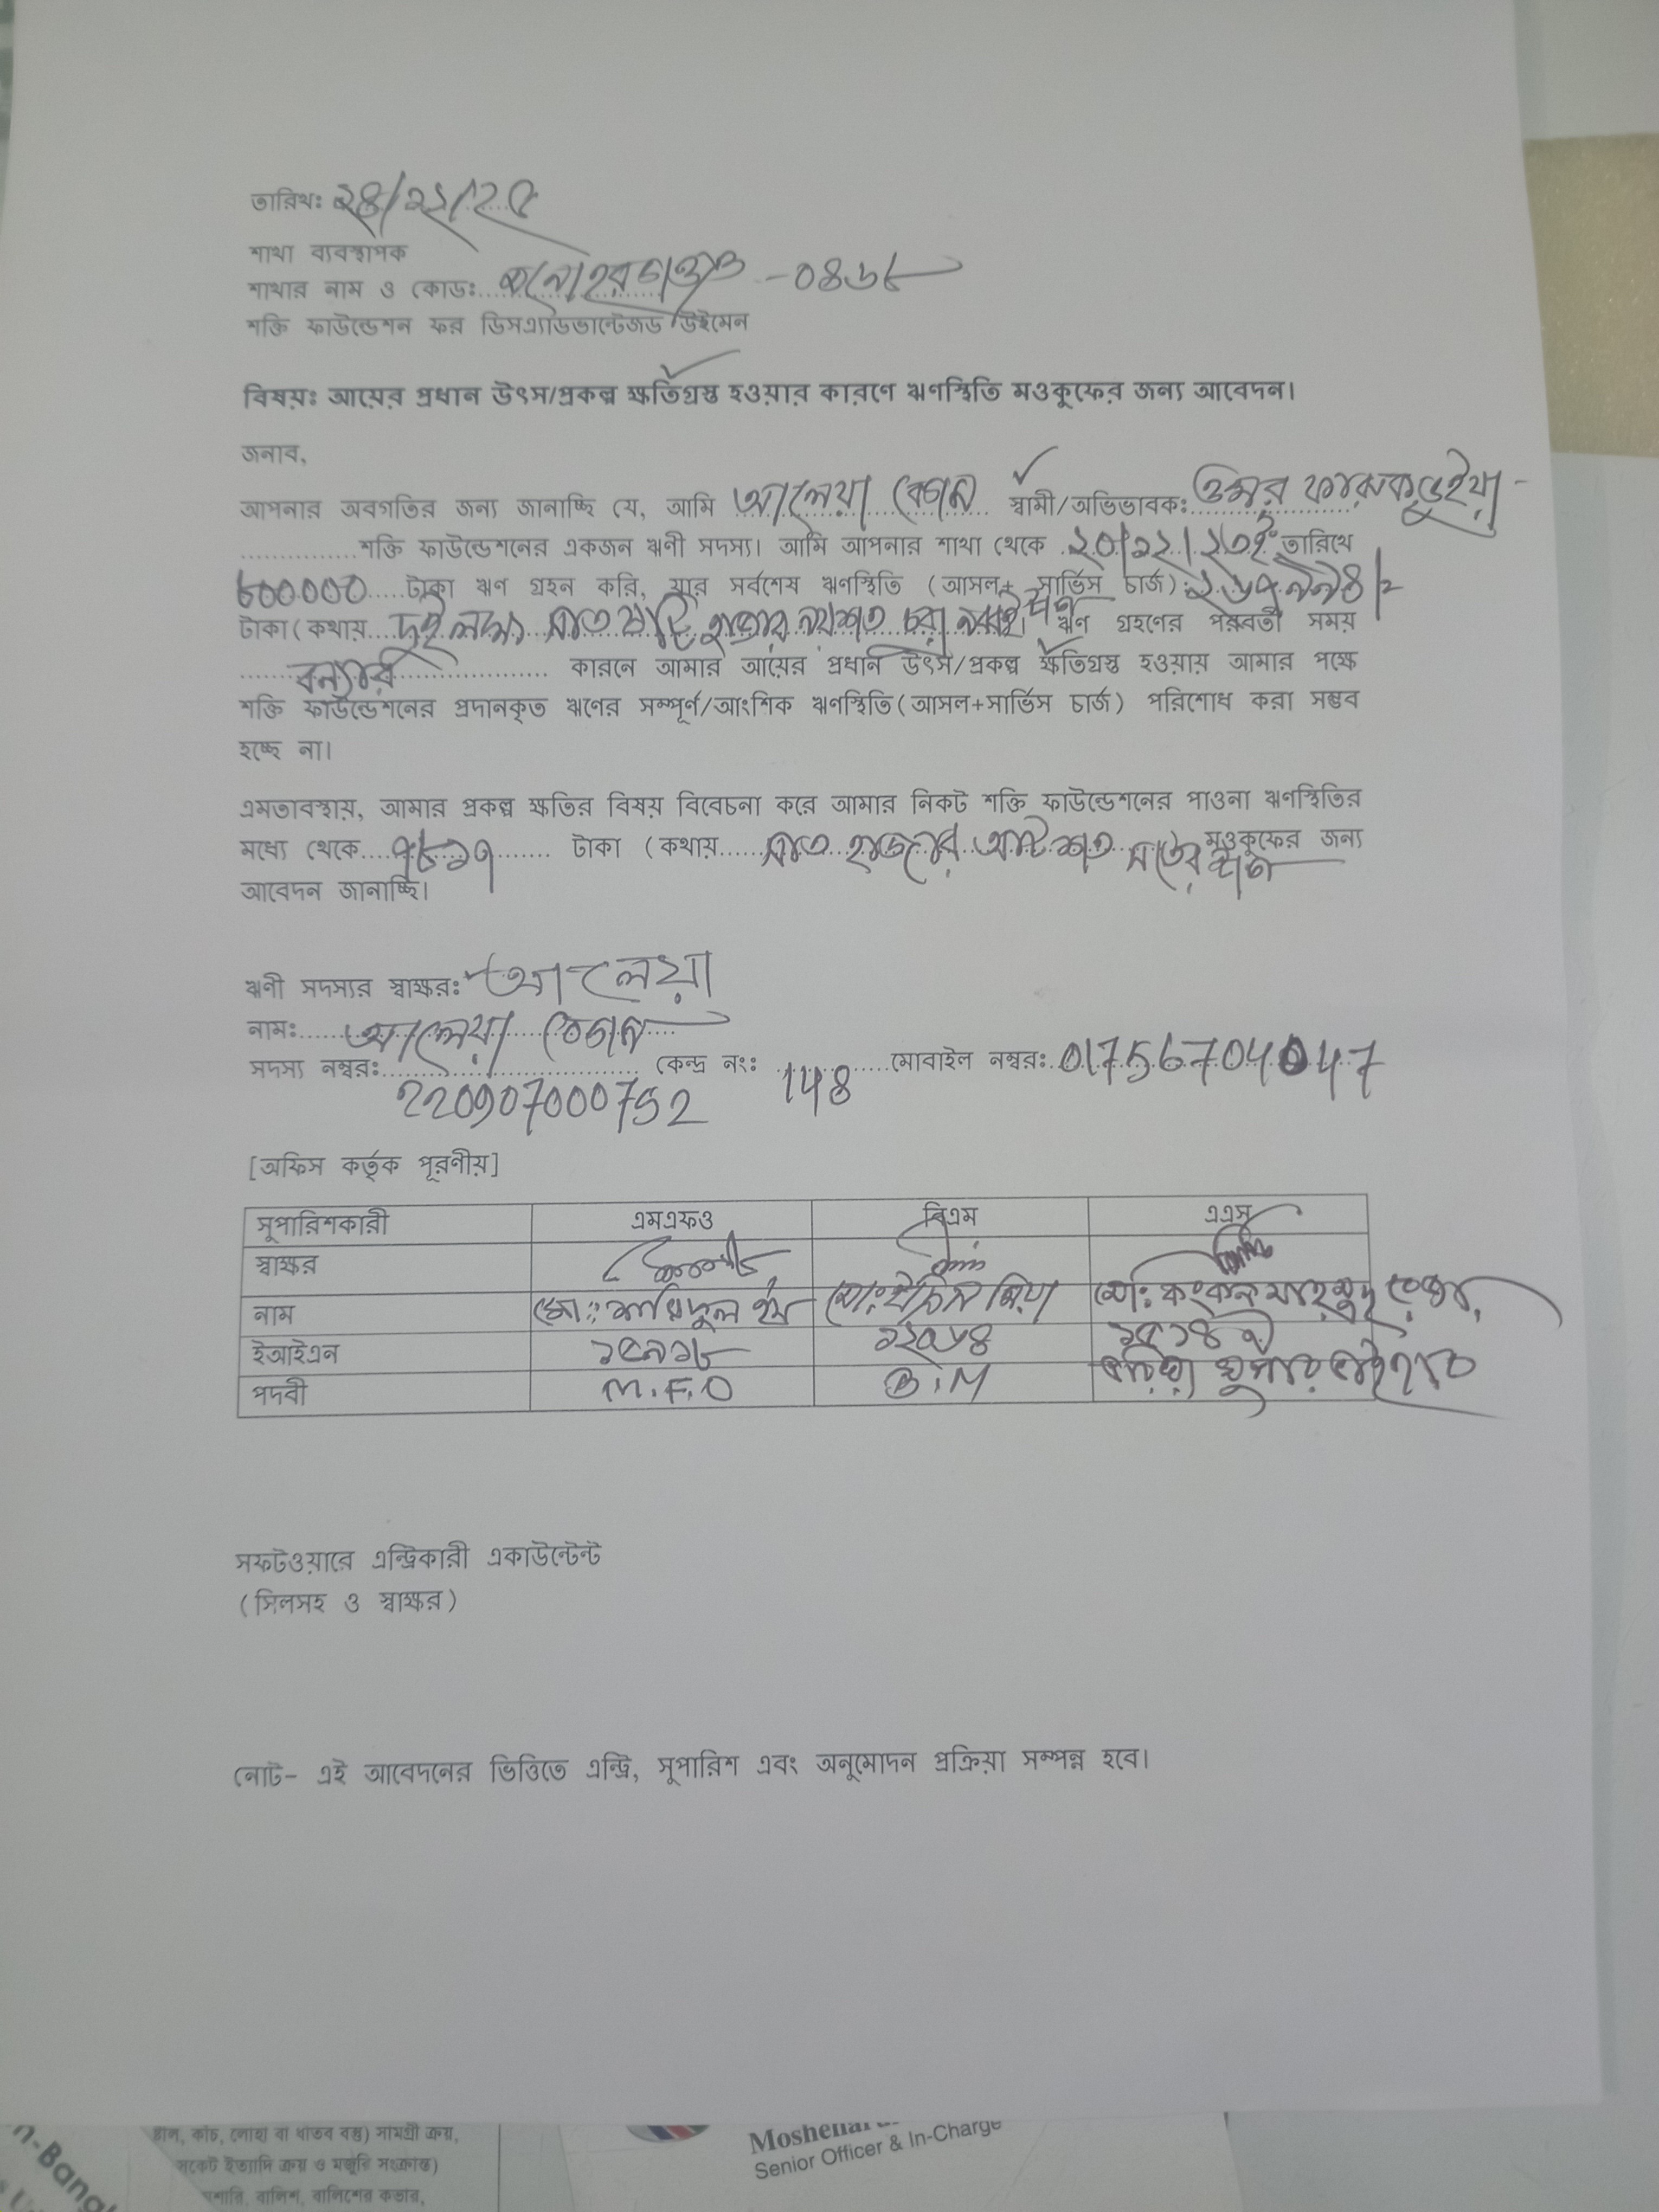 তারিখঃ ২৪/১২/২৫
শাখা ব্যবস্থাপক
শাখার নাম ও কোডঃ মনোহরগঞ্জ -০৪৬৮
শক্তি ফাউন্ডেশন ফর ডিসএ্যাডভান্টেজড উইমেন
বিষয়ঃ আয়ের প্রধান উৎস/প্রকল্প ক্ষতিগ্রস্ত হওয়ার কারণে ঋণস্থিতি মওকুফের জন্য আবেদন।
জনাব,
আপনার অবগতির জন্য জানাচ্ছি যে, আমি আলেয়া বেগম স্বামী/অভিভাবক: ওমর ফারুক ভুইয়া -
শক্তি ফাউন্ডেশনের একজন ঋণী সদস্য। আমি আপনার শাখা থেকে তারিখে
টাকা ঋণ গ্রহন করি, যার সর্বশেষ ঋণস্থিতি (আসল+ সার্ভিস চার্জ): ২৬৭৯৯৪/=
টাকা(কথায় দুই লক্ষ সাত ষাট্টি হাজার নয়শত চুরানব্বই ঋণ গ্রহণের পরবর্তী সময়
বন্যার কারনে আমার আয়ের প্রধান উৎস/প্রকল্প ক্ষতিগ্রস্ত হওয়ায় আমার পক্ষে
শক্তি ফাউন্ডেশনের প্রদানকৃত ঋণের সম্পূর্ণ/আংশিক ঋণস্থিতি(আসল+সার্ভিস চার্জ) পরিশোধ করা সম্ভব
হচ্ছে না।
এমতাবস্থায়, আমার প্রকল্প ক্ষতির বিষয় বিবেচনা করে আমার নিকট শক্তি ফাউন্ডেশনের পাওনা ঋণস্থিতির
মধ্যে থেকে ৭৮১৭ টাকা (কথায় সাত হাজার আট শত সতের মওকুফের জন্য
আবেদন জানাচ্ছি।
ঋণী সদস্যর স্বাক্ষর: আলেয়া
নাম: আলেয়া বেগম
সদস্য নম্বর: কেন্দ্র নং: 148 মোবাইল নম্বর: 01756704047
220907000752
[অফিস কর্তৃক পূরণীয়]
সুপারিশকারী এমএফও বিএম এএস
স্বাক্ষর
নাম মো: মো: মো:
ইআইএন
পদবী M.F.O B.M
সফটওয়ারে এন্ট্রিকারী একাউন্টেন্ট
(সিলসহ ও স্বাক্ষর)
নোট- এই আবেদনের ভিত্তিতে এন্ট্রি, সুপারিশ এবং অনুমোদন প্রক্রিয়া সম্পন্ন হবে।
Senior Officer & In-Charge